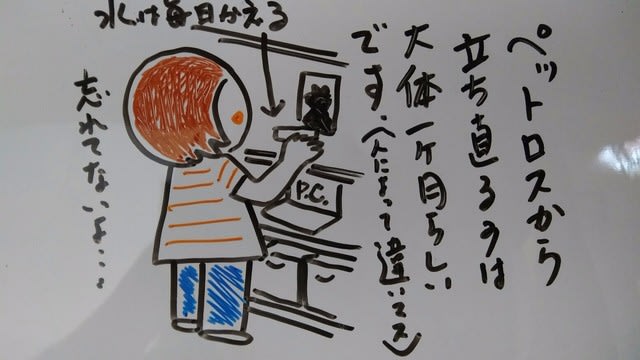 ペットロスから
立ち直るのは
大体一ヶ月らしい
です。(人によって違いマス)
水は毎日かえる
P.C.
忘れてないよ…